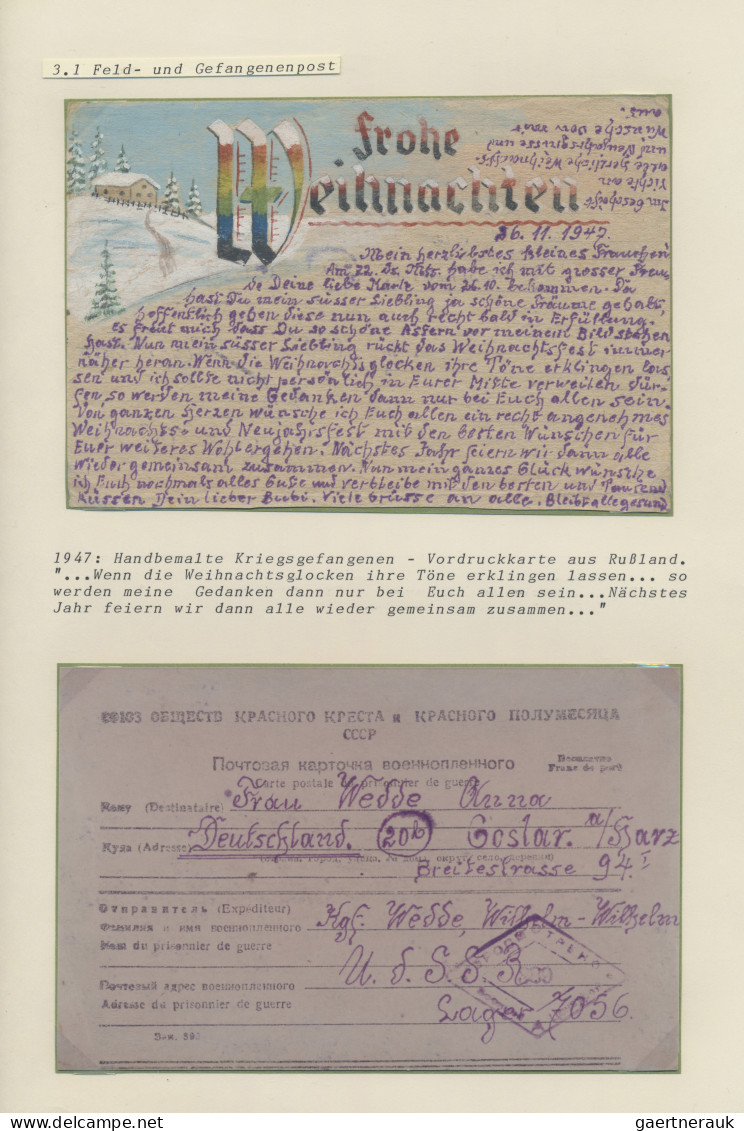 3.1 Feld- und Gefangenenpost
Frohe
Weihnachten
Im Gespräch
Lichte an
alle herzliche Weihnachts
und Neujahrsgrüsse und
Wünsche von
aus.
26.11.1947.
Mein herzliebstes kleines Frauchen
Am 22. ds. Mts. habe ich mit grosser Freu
de Deine liebe Karte vom 26.10. bekommen. Da
hast Du mein süsser Liebling ja schöne Träume gehabt,
hoffentlich gehen diese nun auch recht bald in Erfüllung.
Es freut mich dass Du so schöne Astern vor meinem Bild stehen
hast. Nun mein süsser Liebling rückt das Weihnachtsfest immer
näher heran. Wenn die Weihnachtsglocken ihre Töne erklingen las
sen und ich sollte nicht persönlich in Eurer Mitte verweilen dür-
fen, so werden meine Gedanken dann nur bei Euch allen sein.
Von ganzen Herzen wünsche ich Euch allen ein recht angenehmes
Weihnachts- und Neujahrsfest mit den besten Wünschen für
Euer weiteres Wohlergehen. Nächstes Jahr feiern wir dann alle
wieder gemeinsam zusammen. Nun mein ganzes Glück wünsche
ich Euch nochmals alles Gute und verbleibe mit den besten und Tausend
Küssen Dein lieber Bubi. Viele Grüsse an alle. Bleibt alle gesund
1947: Handbemalte Kriegsgefangenen - Vordruckkarte aus Rußland.
"...Wenn die Weihnachtsglocken ihre Töne erklingen lassen... so
werden meine Gedanken dann nur bei Euch allen sein...Nächstes
Jahr feiern wir dann alle wieder gemeinsam zusammen..."
СОЮЗ ОБЩЕСТВ КРАСНОГО КРЕСТА и КРАСНОГО ПОЛУМЕСЯЦА
СССР
Почтовая карточка военнопленного
Carte postale du prisonnier de guerre
Бесплатно
Franc de port
Кому (Destinataire) Frau Wedde Anna
Куда (Adresse) Deutschland. 20b Goslar. a/Harz
(страна, город, улица, № дома, округ, село, деревня)
Breitestrasse 94 I
Отправитель (Expéditeur)
Фамилия и имя военнопленного Kgf. Wedde, Wilhelm-Wilhelm
Nom du prisonnier de guerre
Почтовый адрес военнопленного U.d.S.S.R.
Adresse du prisonnier de guerre
Lager 7056.
Зак. 593
gaertnerauk